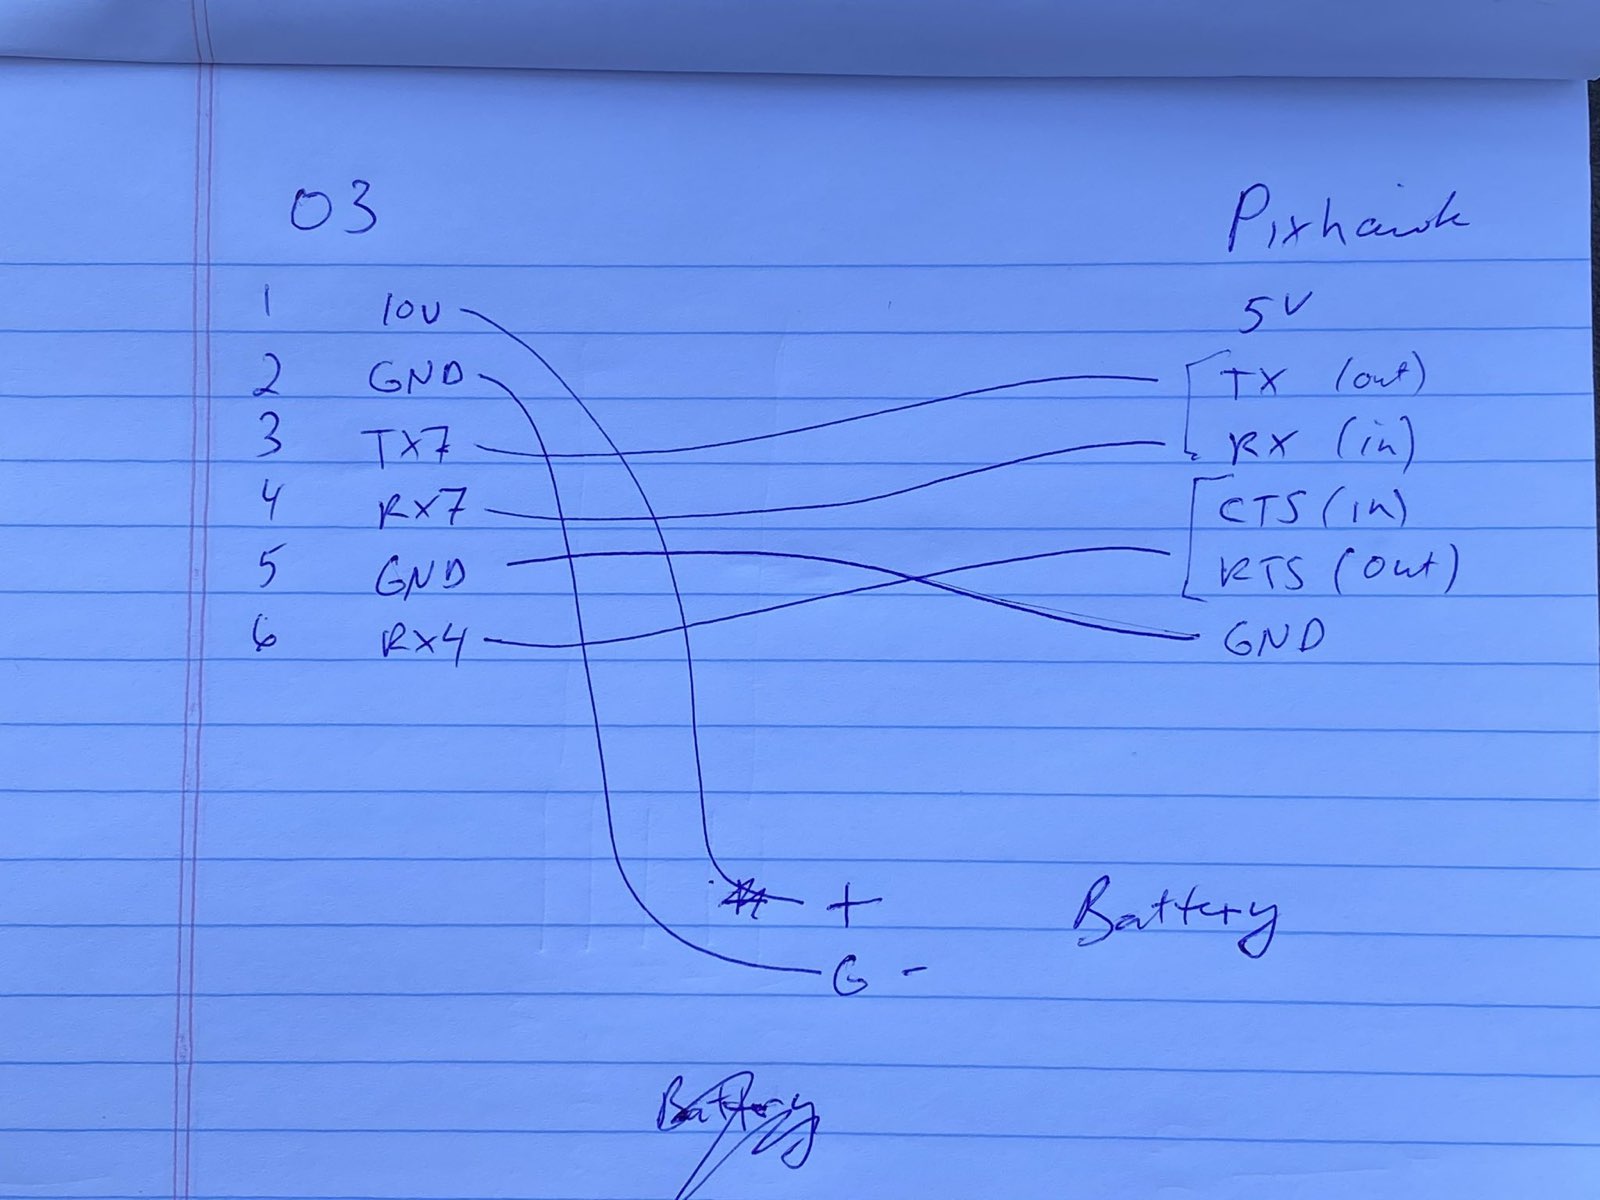 O3 Pixhawk
1 10V 5V
2 GND TX (out)
3 TX7 RX (in)
4 RX7 CTS (in)
5 GND RTS (out)
6 RX4 GND
+ Battery
G -
Battery